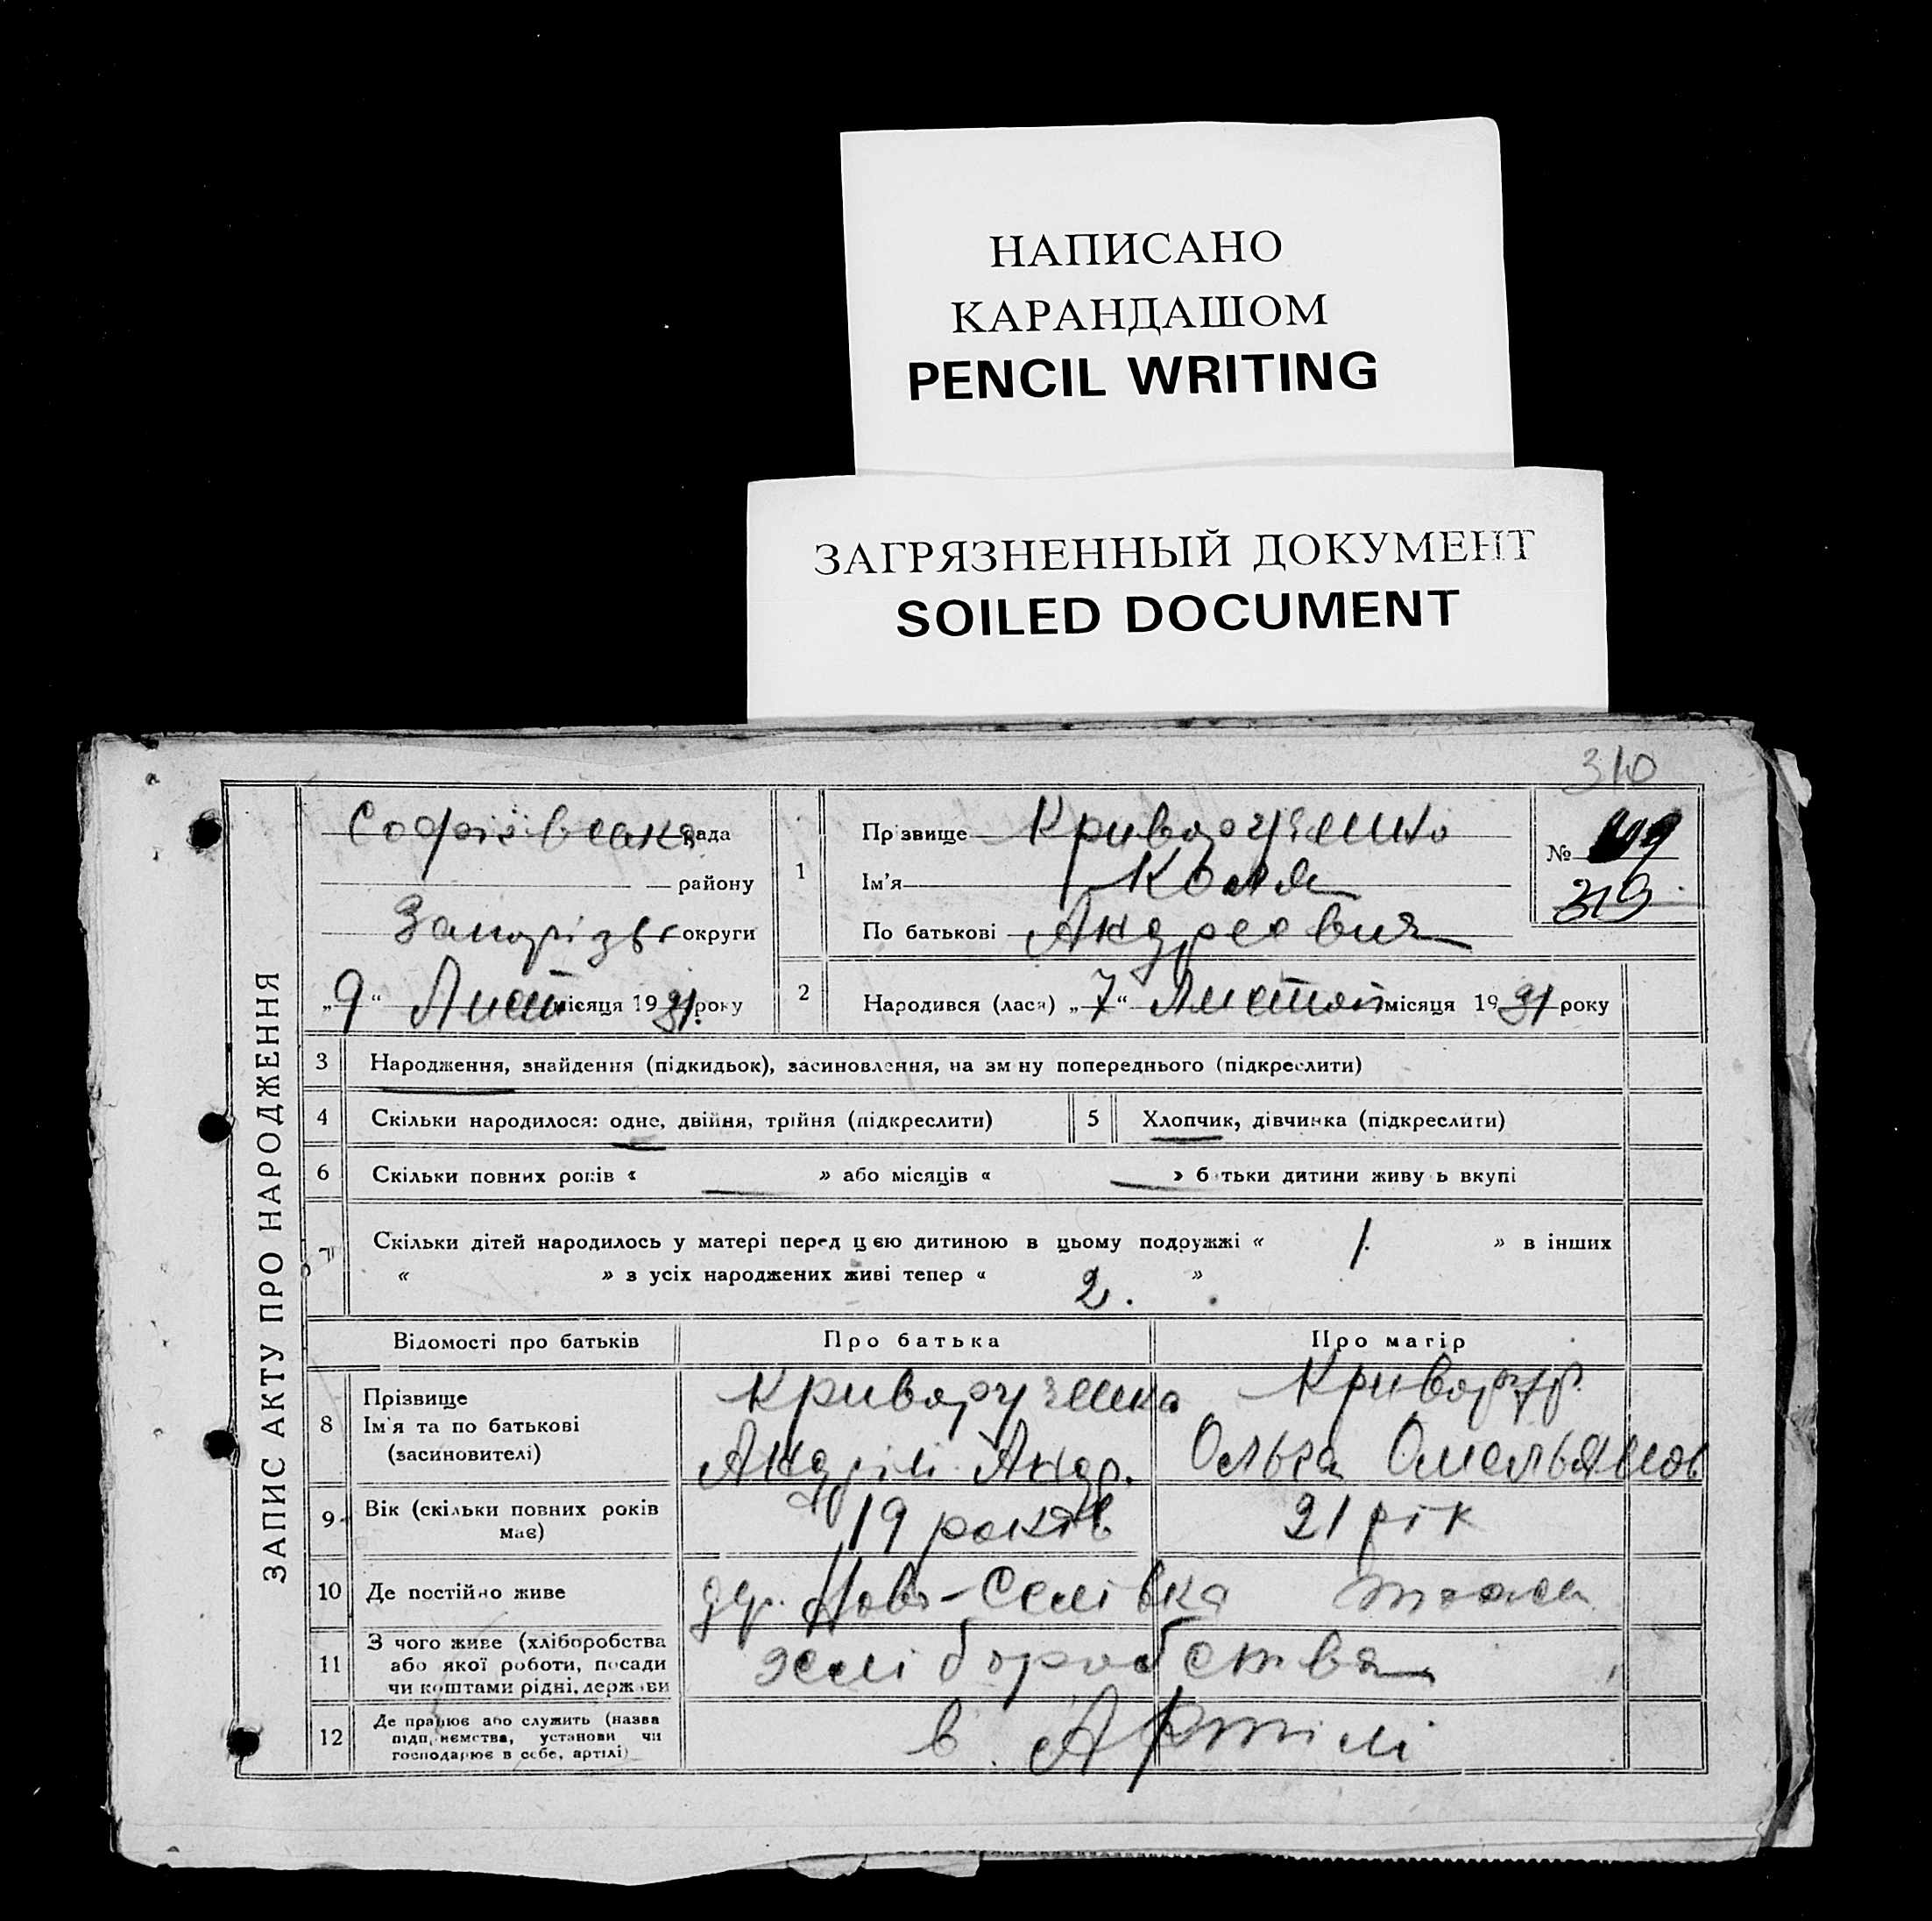 НАПИСАНО
КАРАНДАШОМ
PENCIL WRITING
ЗАГРЯЗНЕННЫЙ ДОКУМЕНТ
SOILED DOCUMENT
310
ЗАПИС АКТУ ПРО НАРОДЖЕННЯ
Софіївська рада
району
округи
„9“ Лист місяця 1931 року
1
Прізвище
Ім'я Коля
По батькові Андреевич
№
319
2 Народився (лася) „7“ місяця 1931 року
3 Народження, знайдення (підкидьок), засиновлення, на зм ну попереднього (підкреслити)
4 Скільки народилося: одне, двійня, трійня (підкреслити) 5 Хлопчик, дівчинка (підкреслити)
6 Скільки повних років « » або місяців « » б тьки дитини живу ь вкупі
7 Скільки дітей народилось у матері перед цією дитиною в цьому подружжі « 1. » в інших
« » з усіх народжених живі тепер « 2. »
Відомості про батьків Про батька Про матір
8 Прізвище
Ім'я та по батькові
(засновителі)
Андрій Андр. Ольга Омельянов
9 Вік (скільки повних років
має)
19 років 21 рік
10 Де постійно живе
11 З чого живе (хліборобства
або якої роботи, посади
чи коштами рідні, держави
хліборобства
12 Де працює або служить (назва
підприємства, установи чи
господарює в себе, артілі)
в Артілі